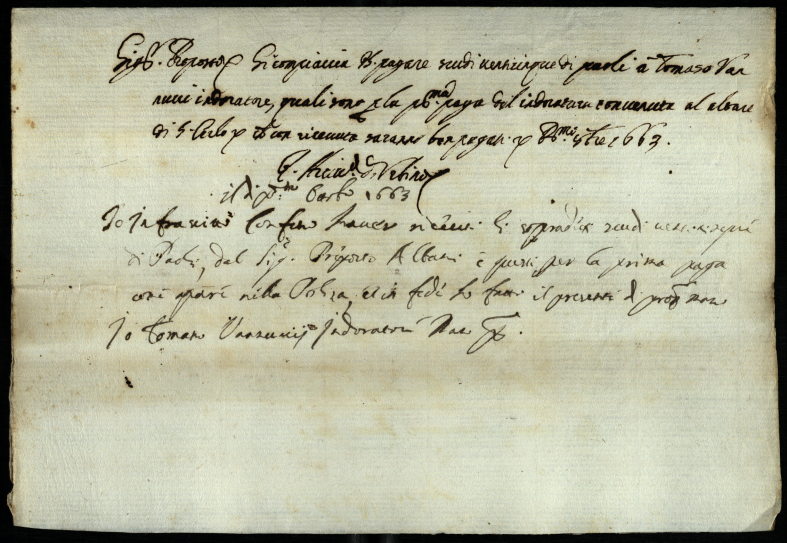 Sig.r Proposto Si compiaccia di pagare scudi venticinque di paoli à Tomaso Van
nucci indoratore, quali sono p la p.ma paga del indoratura convenuta al altare
di S. Carlo p che con ricevuta saranno ben pagati p 1663.
d'Urbino
il dì p.mo 1663
Io Infrascritto Confesso haver ricevuti li sopradetti scudi venticinque
di Paoli, dal Sig.r Preposto Albani è questi per la prima paga
come appare nella Poliza, et in fede ho fatto il presente di prop.a mano
Io Tomaso Vannucij Indoratore mano pp.